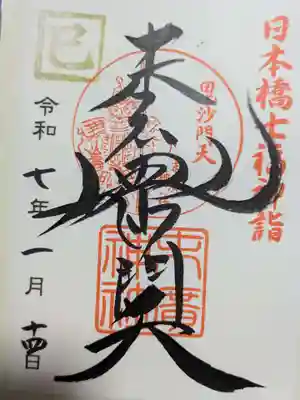 日本橋七福神詣
毘沙門天
末廣神社
巳
令和七年一月十四日